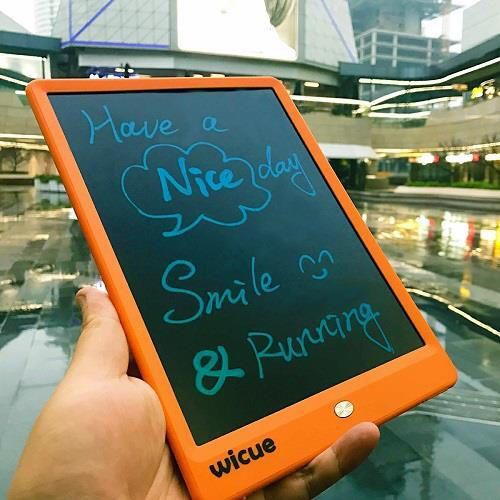 Have a
Nice day
Smile
& Running
wicue